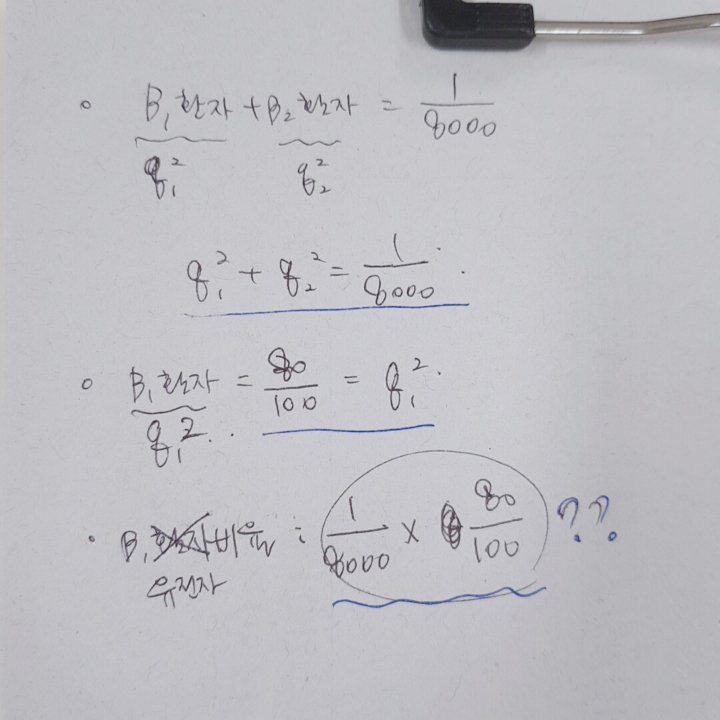 B₁환자 + B₂환자 = 1/8000
q₁² q₂²
q₁² + q₂² = 1/8000
B₁환자 = 80/100 = q₁²
q₁²
B₁환자비율 : 1/8000 × 80/100 ??
유전자